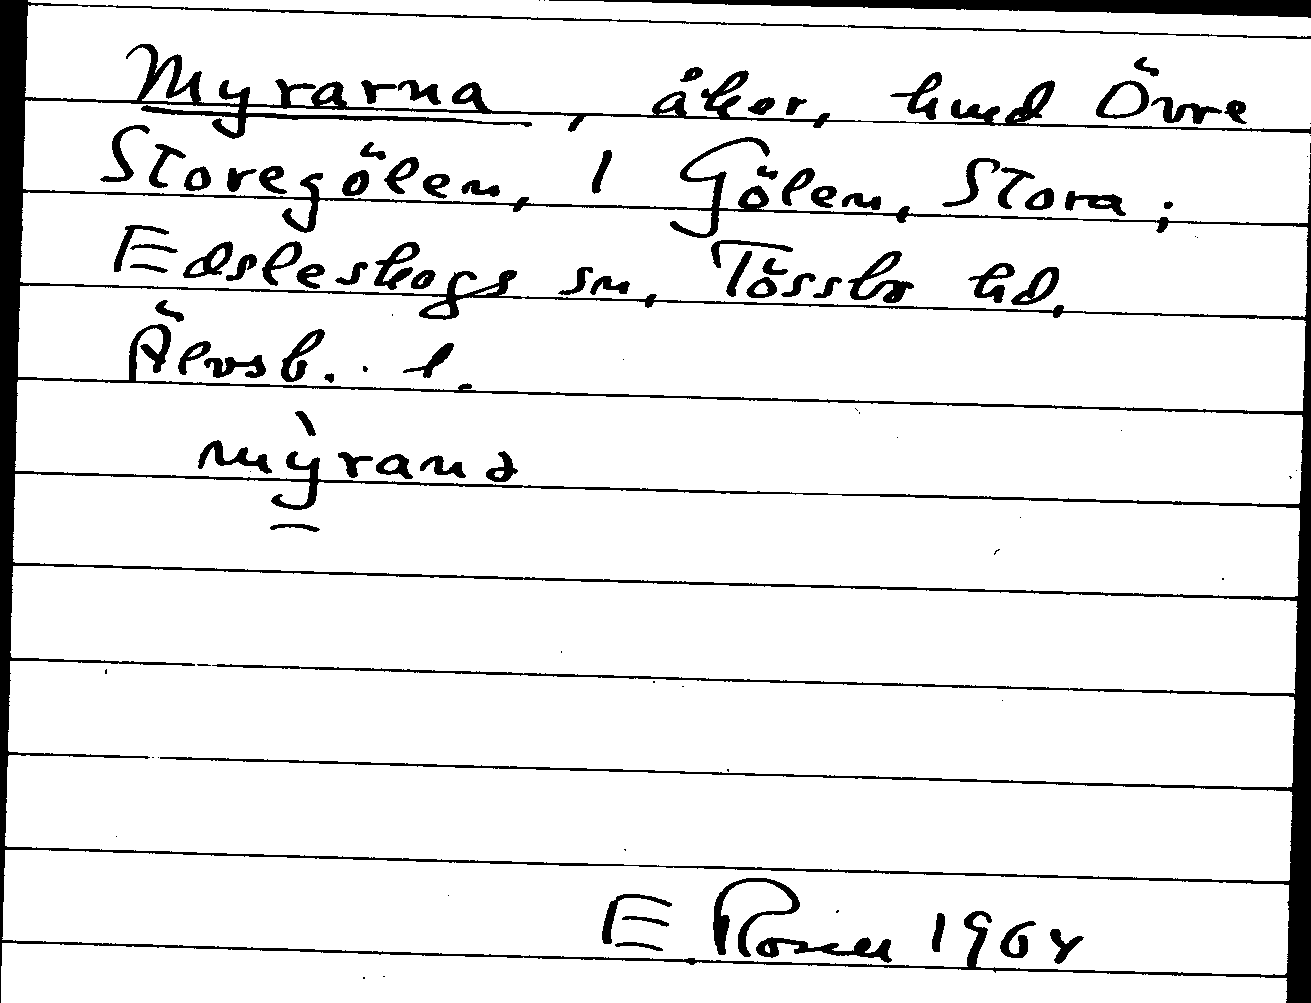 Myrarna, åker, hmd Övre
Storegölen, 1 Gölen, Stora;
Edsleskogs sn, Tössbo hd,
Älvsb. l.
mỳrana
E. Rosén 1964